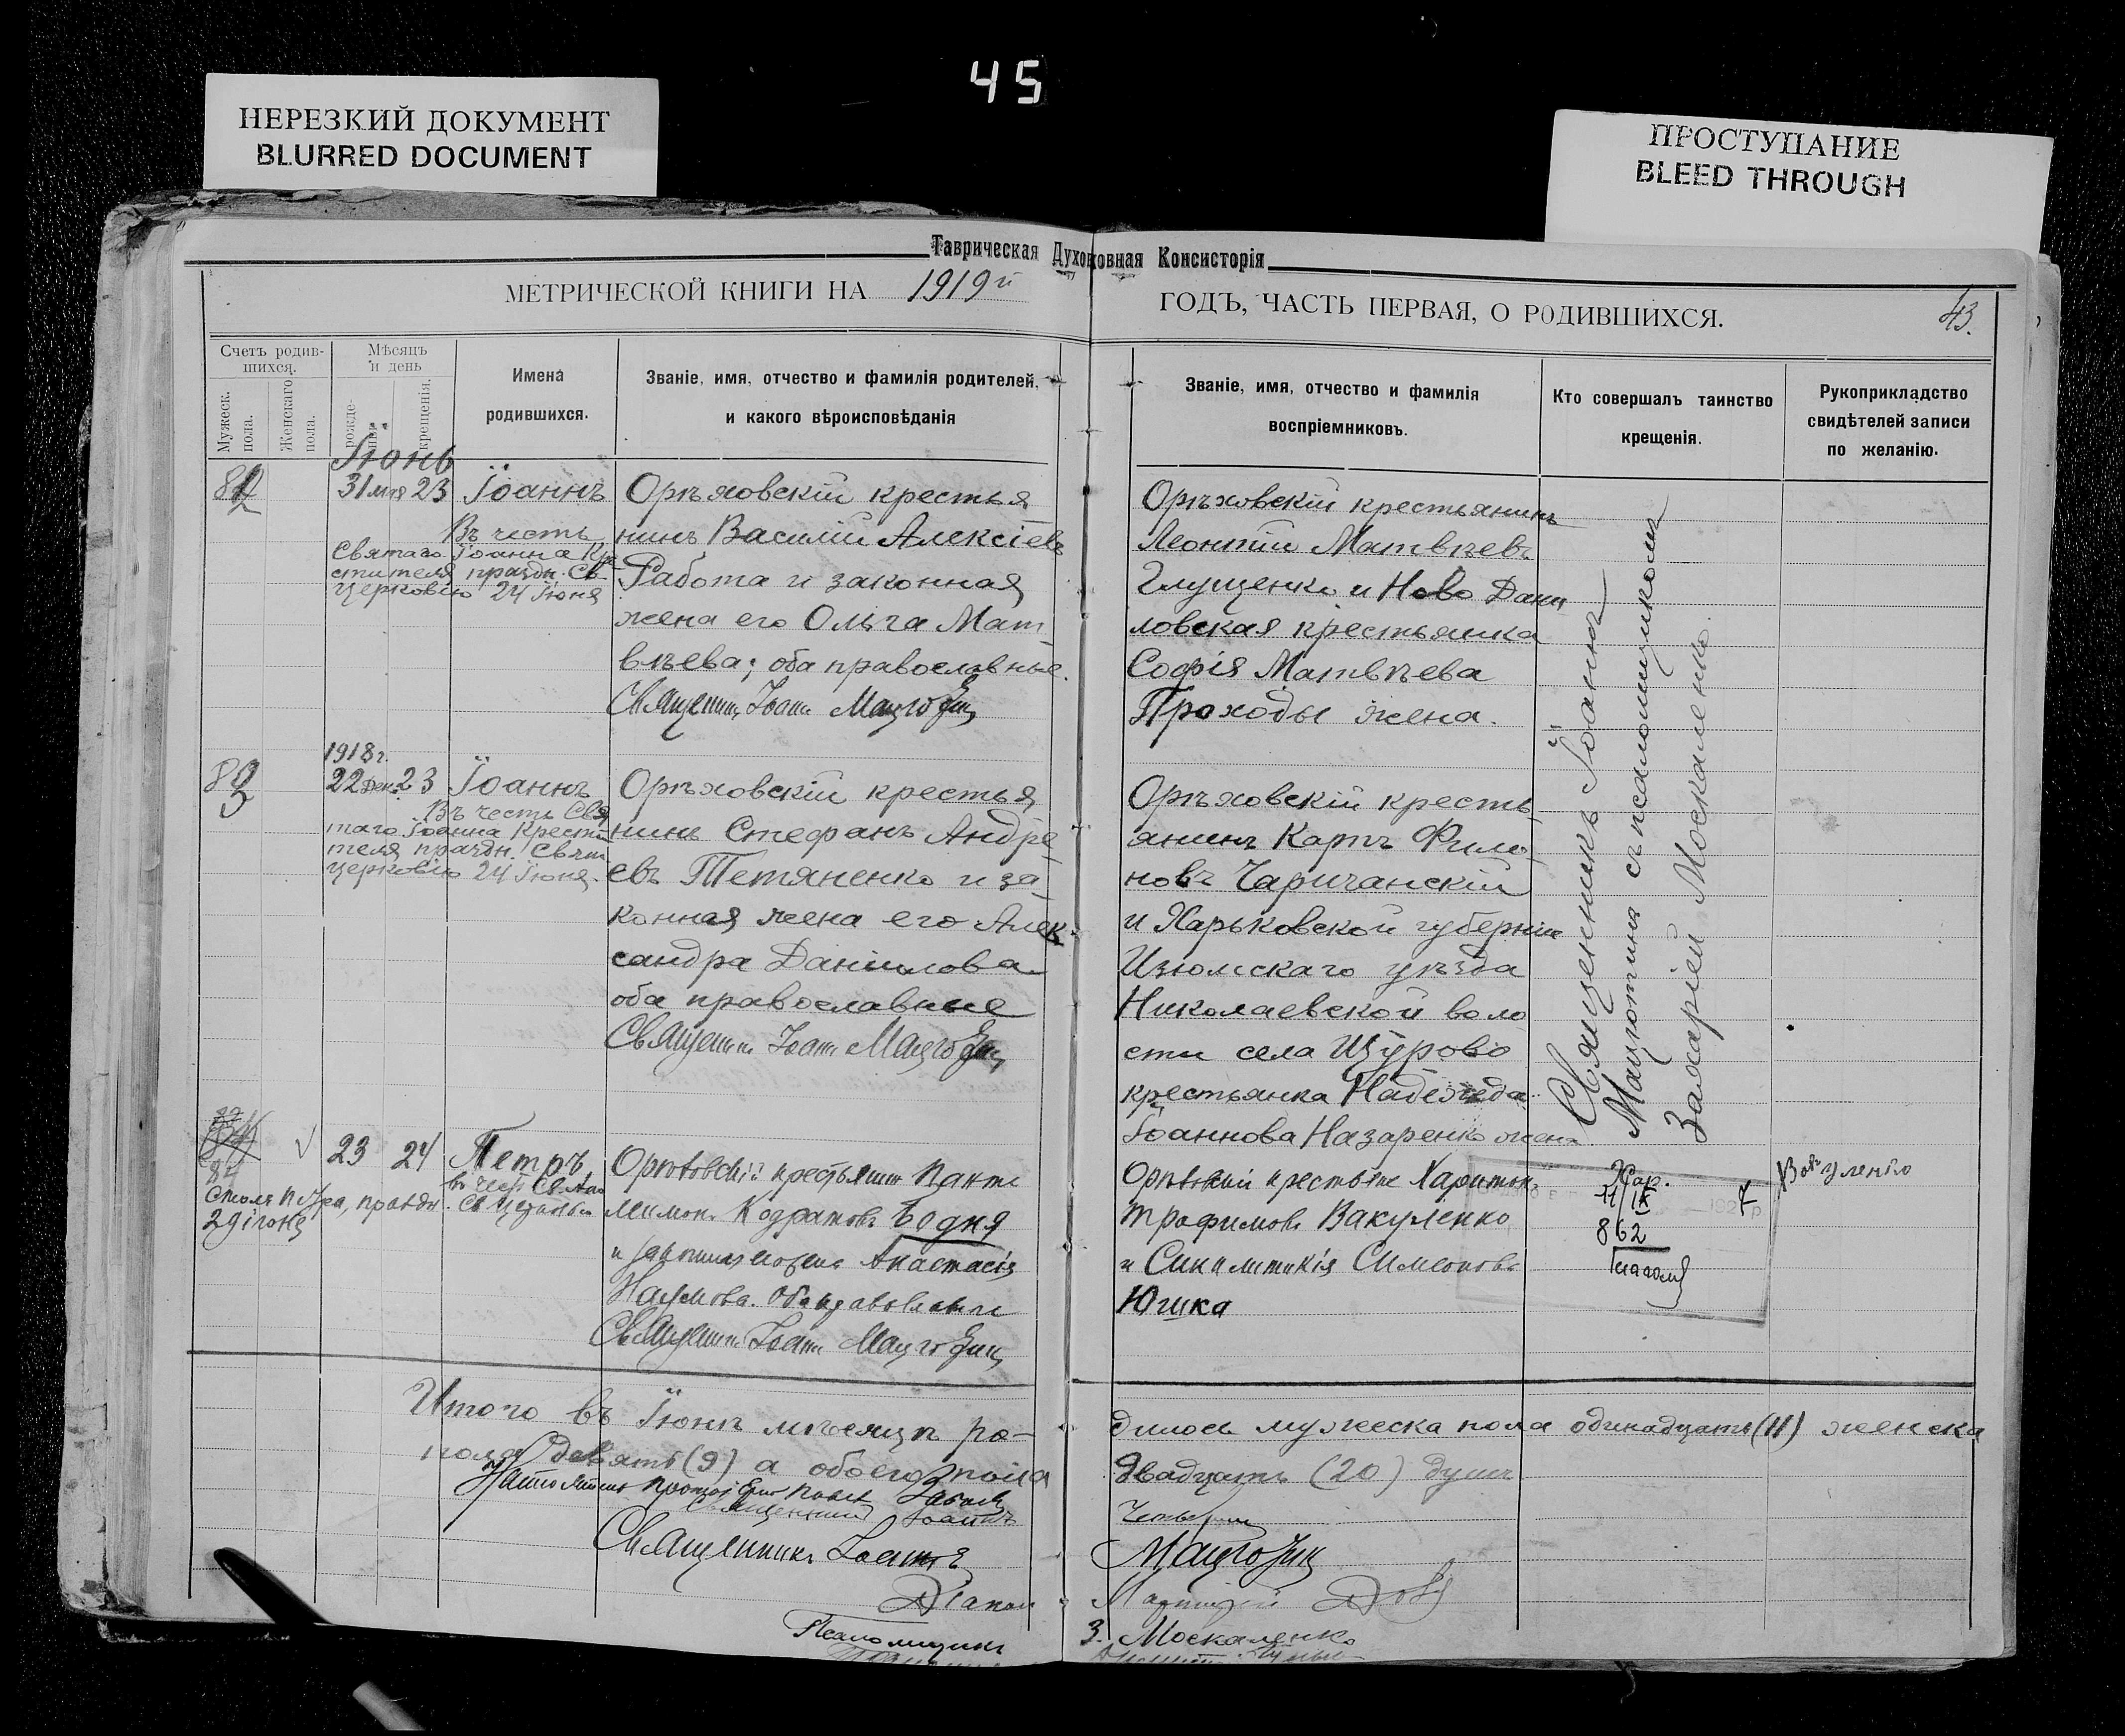 45
НЕРЕЗКИЙ ДОКУМЕНТ
BLURRED DOCUMENT
ПРОСТУПАНИЕ
BLEED THROUGH
Таврическая Духовная Консисторія
МЕТРИЧЕСКОЙ КНИГИ НА 1919й
ГОДЪ, ЧАСТЬ ПЕРВАЯ, О РОДИВШИХСЯ.
43.
Счетъ родив-
шихся.
Мужеск.
пола.
Женскаго
пола.
Мѣсяцъ
и день
рожде-
нія.
крещенія.
Имена
родившихся.
Званіе, имя, отчество и фамилія родителей,
и какого вѣроисповѣданія
Званіе, имя, отчество и фамилія
воспріемниковъ.
Кто совершалъ таинство
крещенія.
Рукоприкладство
свидѣтелей записи
по желанію.
Іюнь
82
31 мая 23
Іоаннъ
Въ честь
Святаго Іоанна Кре
стителя праздн. Св.
церковію 24 Іюня
Орѣховскій крестья
нинъ Василій Алексіевъ
Работа и законная
жена его Ольга Мат
вѣева; оба православные.
Священникъ Іоаннъ
Орѣховскій крестьянинъ
Леонтій Матвѣевъ
Глущенко и Ново Дани
ловская крестьянка
Софія Матвѣева
Проходы жена.
83
1918 г.
22 Дек. 23
Іоаннъ
Въ честь Свя
таго Іоанна Крести
теля праздн. Свят.
церковію 24 Іюня.
Орѣховскій крестья
нинъ Стефанъ Андре
евъ Тетяненко и за
конная жена его Алек
сандра Даніилова
оба православные
Священникъ Іоаннъ
Орѣховскій кресть
янинъ Карпъ Фили
новъ Чаричанскій
и Харьковской губерніи
Изюмскаго уѣзда
Николаевской воло
сти села Щурово
крестьянка Надежда
Іоаннова Назаренко жена
Священникъ Іоаннъ
съ псаломщикомъ
Захаріей Москаленко.
84
23 24
Петръ
въ честь Св. Апо
стола Петра, праздн. Св. Церковью
29 іюня
Орѣховскій крестьянинъ Панте
леимонъ Бодня
и законная жена Анастасія
Наумова. Оба православные
Священникъ Іоаннъ
Орѣховскій крестьянинъ Харитонъ
Трофимовъ Вакуленко
и Синклитикія Симеонова
Югика
11/IX
1927
862
Итого въ Іюнѣ мѣсяцѣ ро-
дилось мужеска пола одинадцать (11) женска
пола девять (9) а обоего пола
двадцать (20) душъ
Настоятель Протоіерей Павелъ
Священникъ Іоаннъ
Священникъ Іоаннъ
Діаконъ
Псаломщикъ
З. Москаленко